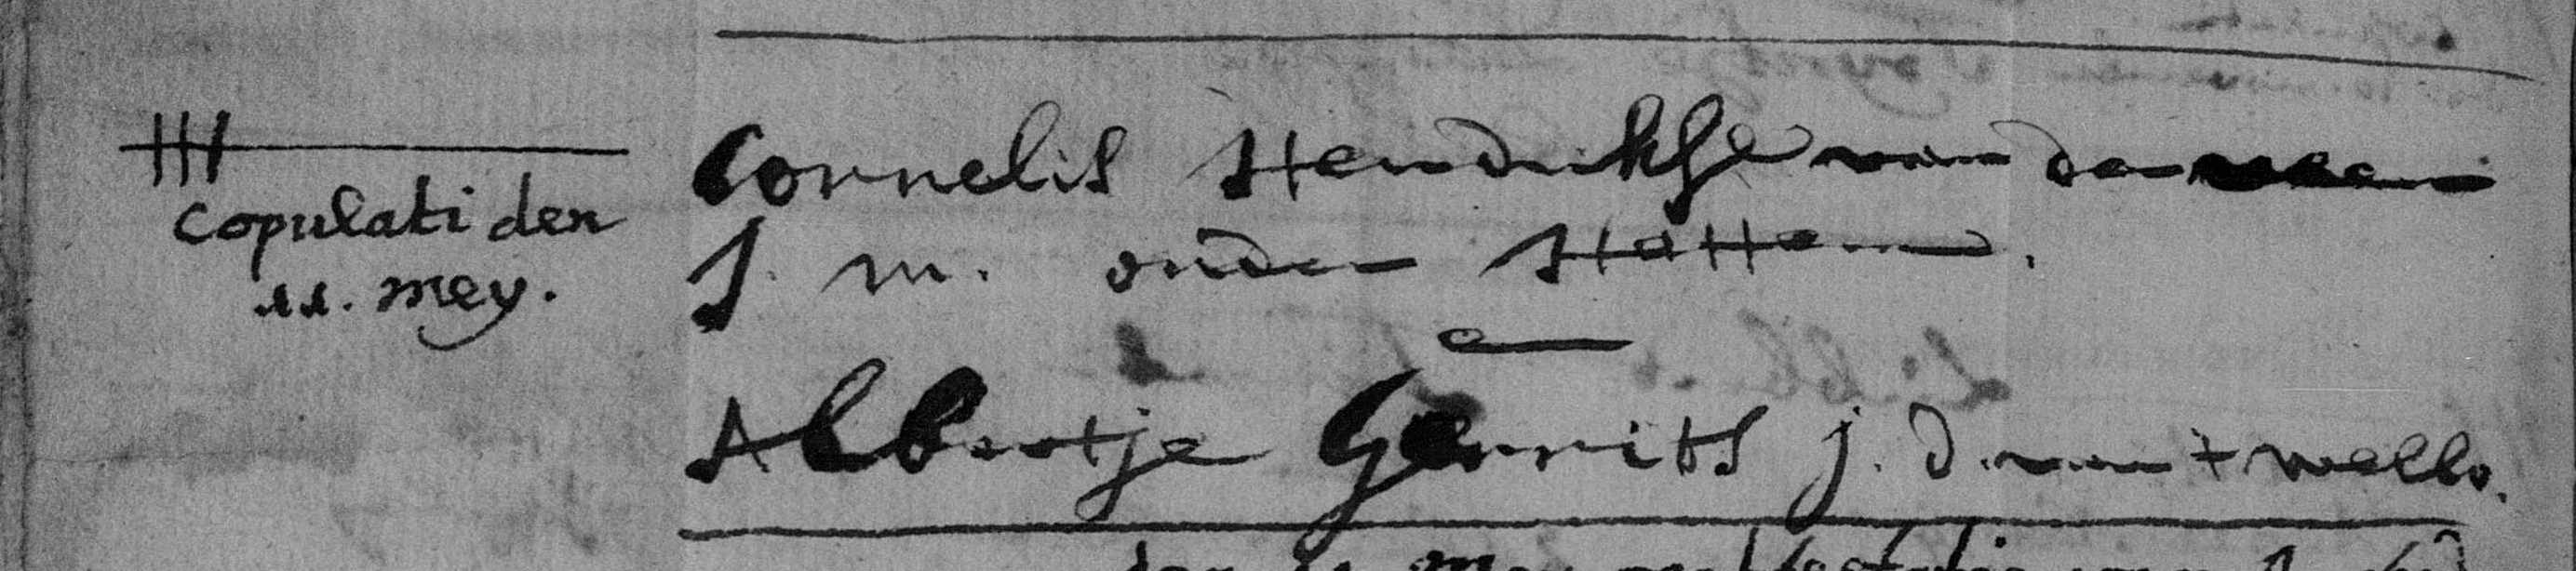 Copulati den
11. mey.
Cornelis Hendrikse van der veen
J. m. onder Hattem.
en
Albertje Gerrits j. d. van t welle.